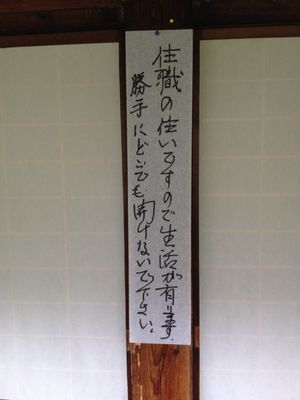 住職の住いですので生活が有ります.
勝手にどこでも開けないで下さい.